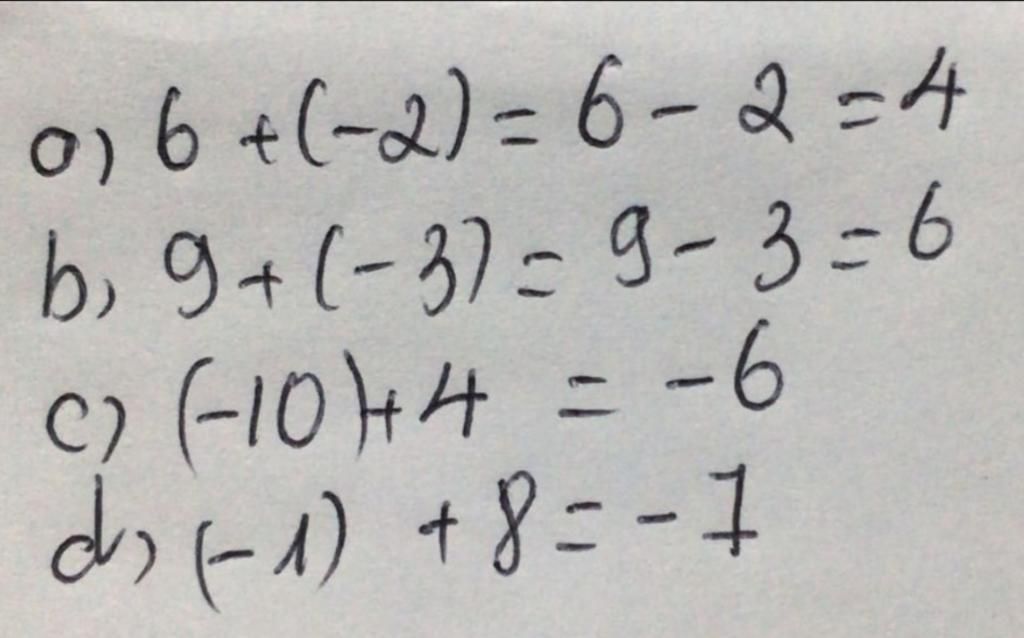 a) 6 + (-2) = 6 - 2 = 4
b) 9 + (-3) = 9 - 3 = 6
c) (-10) + 4 = -6
d) (-1) + 8 = -7